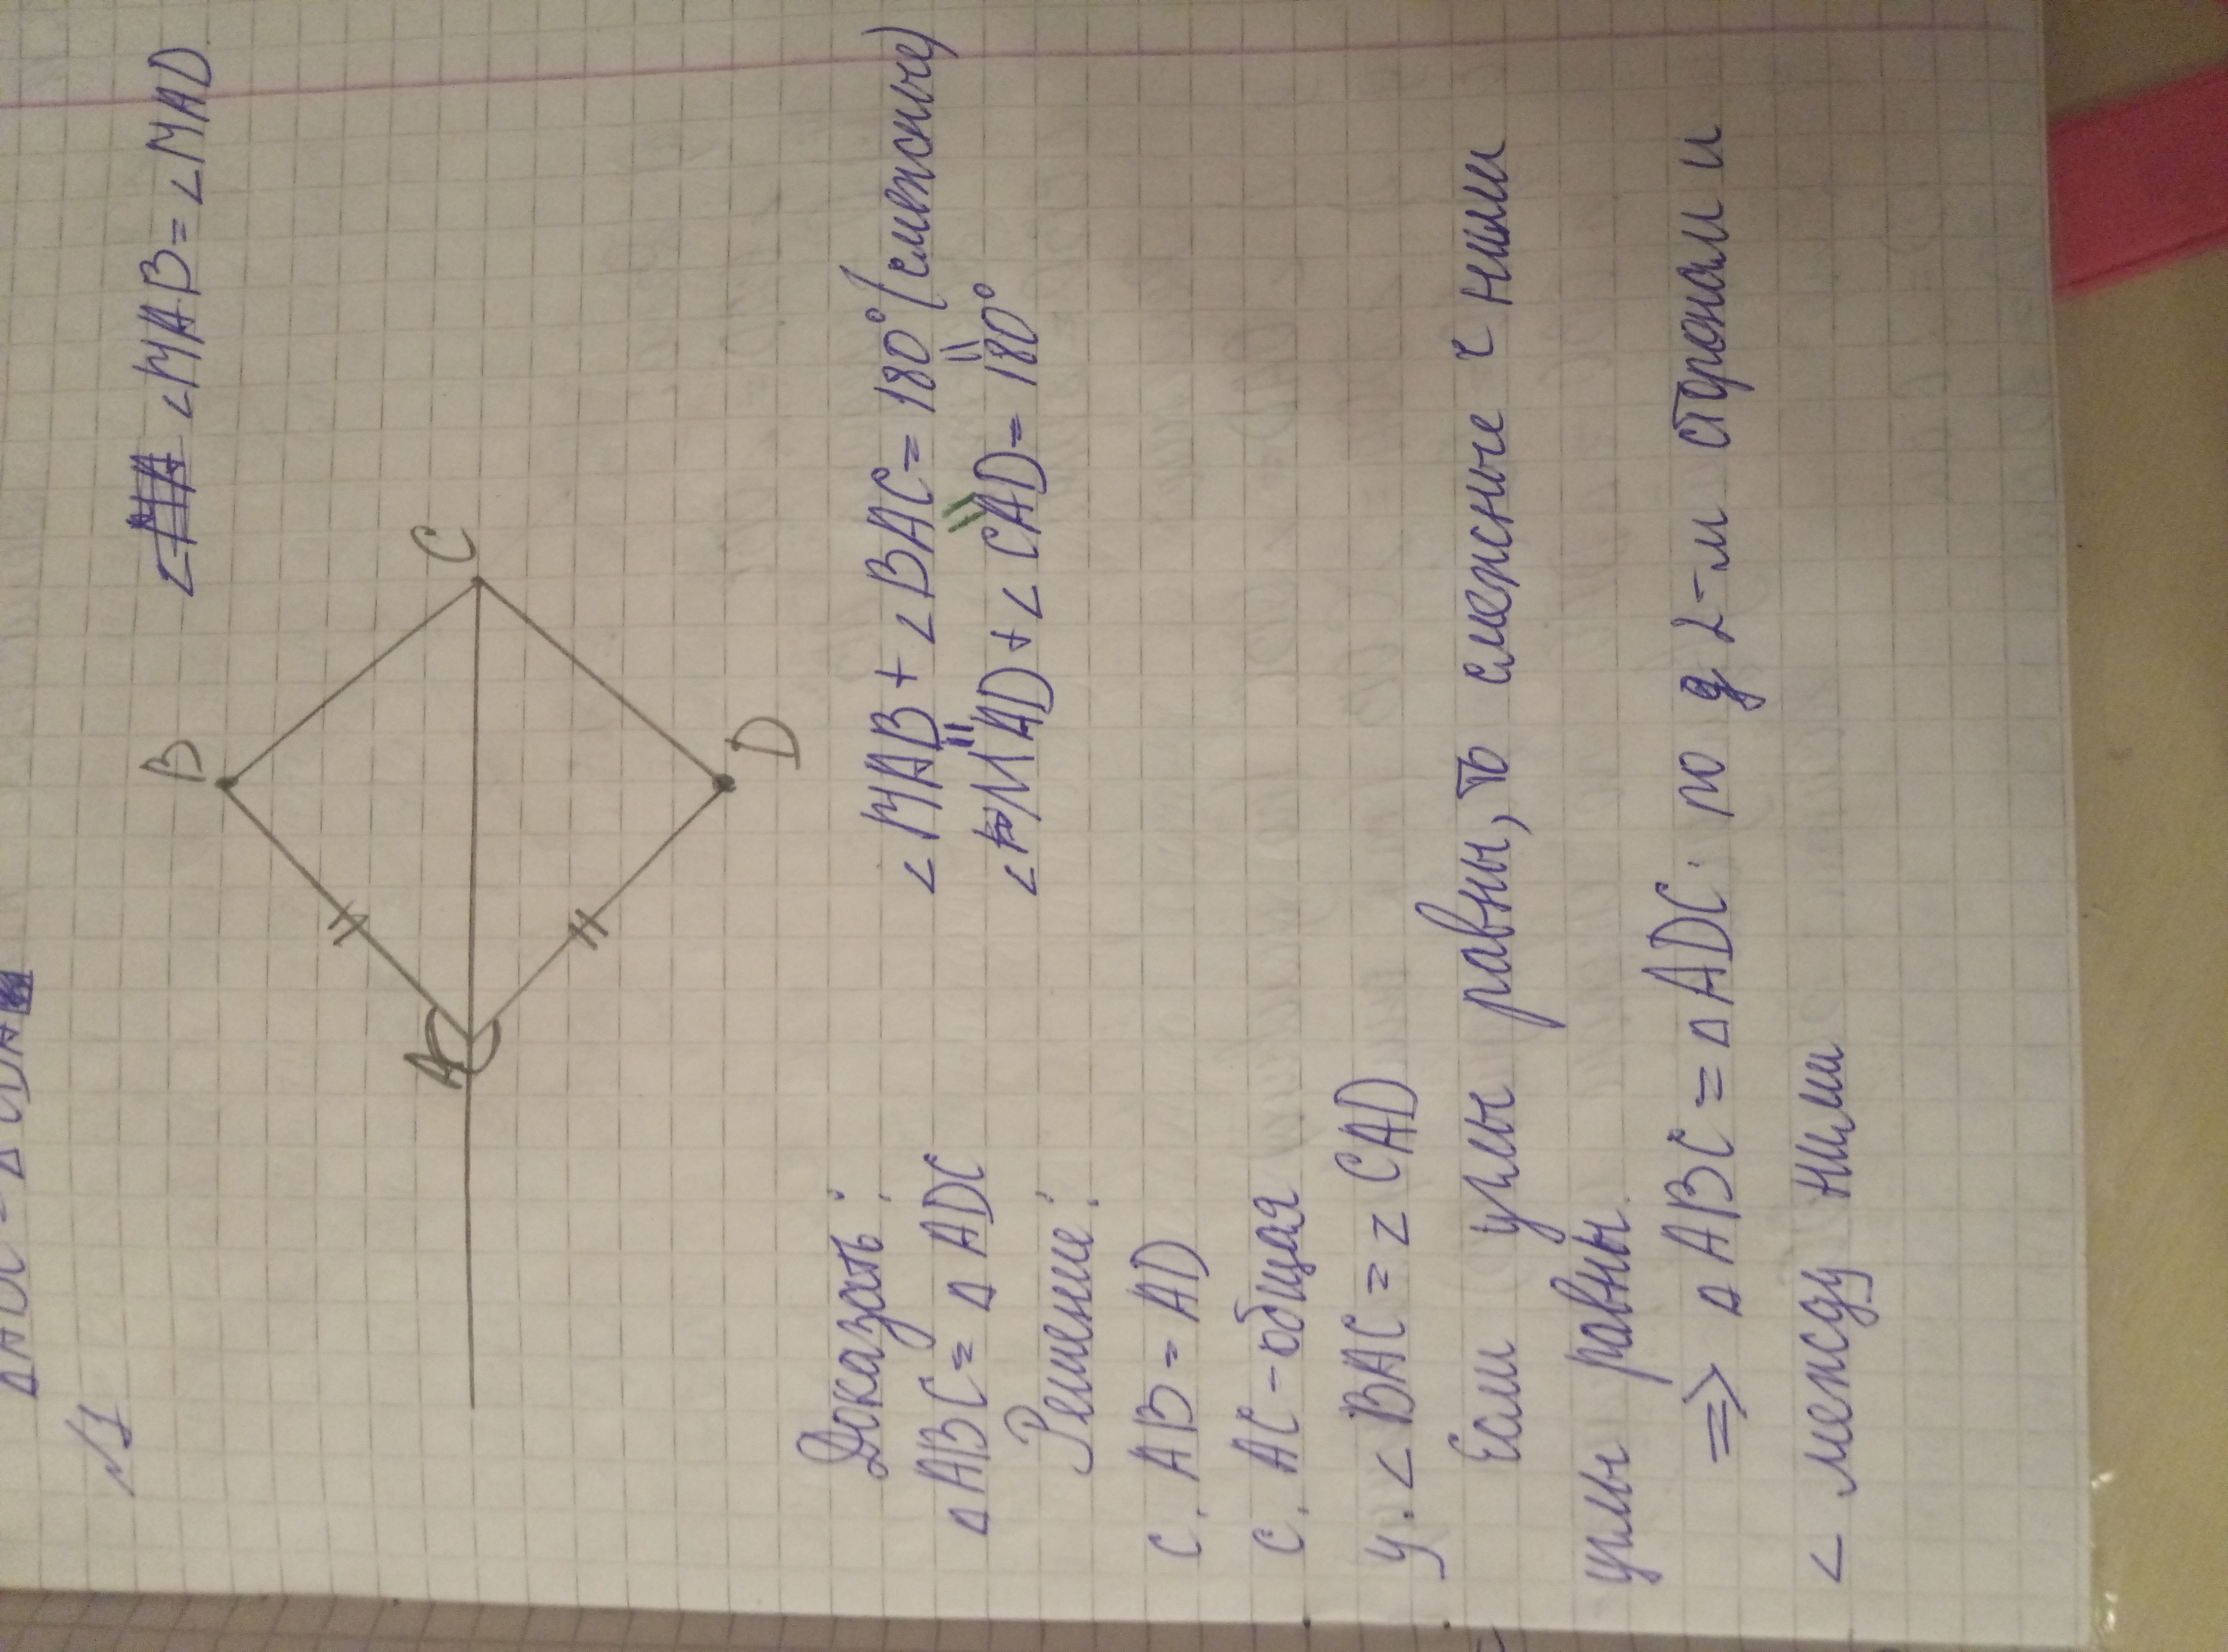 №1
∠MAB = ∠MAD
B
C
A
D
Доказать:
△ABC = △ADC
∠MAB + ∠BAC = 180° (смежные)
∠MAD + ∠CAD = 180°
Решение:
С. AB = AD
С. AC - общая
У. ∠BAC = ∠CAD
Если углы равны, то смежные с ними
углы равны.
⇒ △ABC = △ADC по 2-м сторонам и
∠ между ними